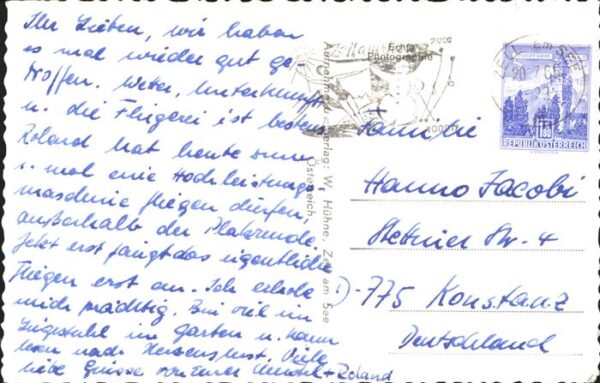 Ihr Lieben, wir haben
es mal wieder gut ge-
troffen. Wetter, Unterkunft
u. die Fliegerei ist bestens
Roland hat heute zum
1. mal eine Hochleistungs-
maschine fliegen dürfen,
außerhalb der Platzrunde.
Jetzt erst fängt das eigentliche
Fliegen erst an. Ich erhole
mich prächtig. Bin viel im
Liegestuhl im Garten u. kann
lesen nach Herzenslust. Viele
liebe Grüsse von Eurer + Roland
Echte
Photographie
Verlag: W. Hühne, Zell am See
Österreich
2000
ZELL am SEE
20.7.
REPUBLIK ÖSTERREICH
Familie
Hanno Jacobi
Stettiner Str. 4
D-775 Konstanz
Deutschland